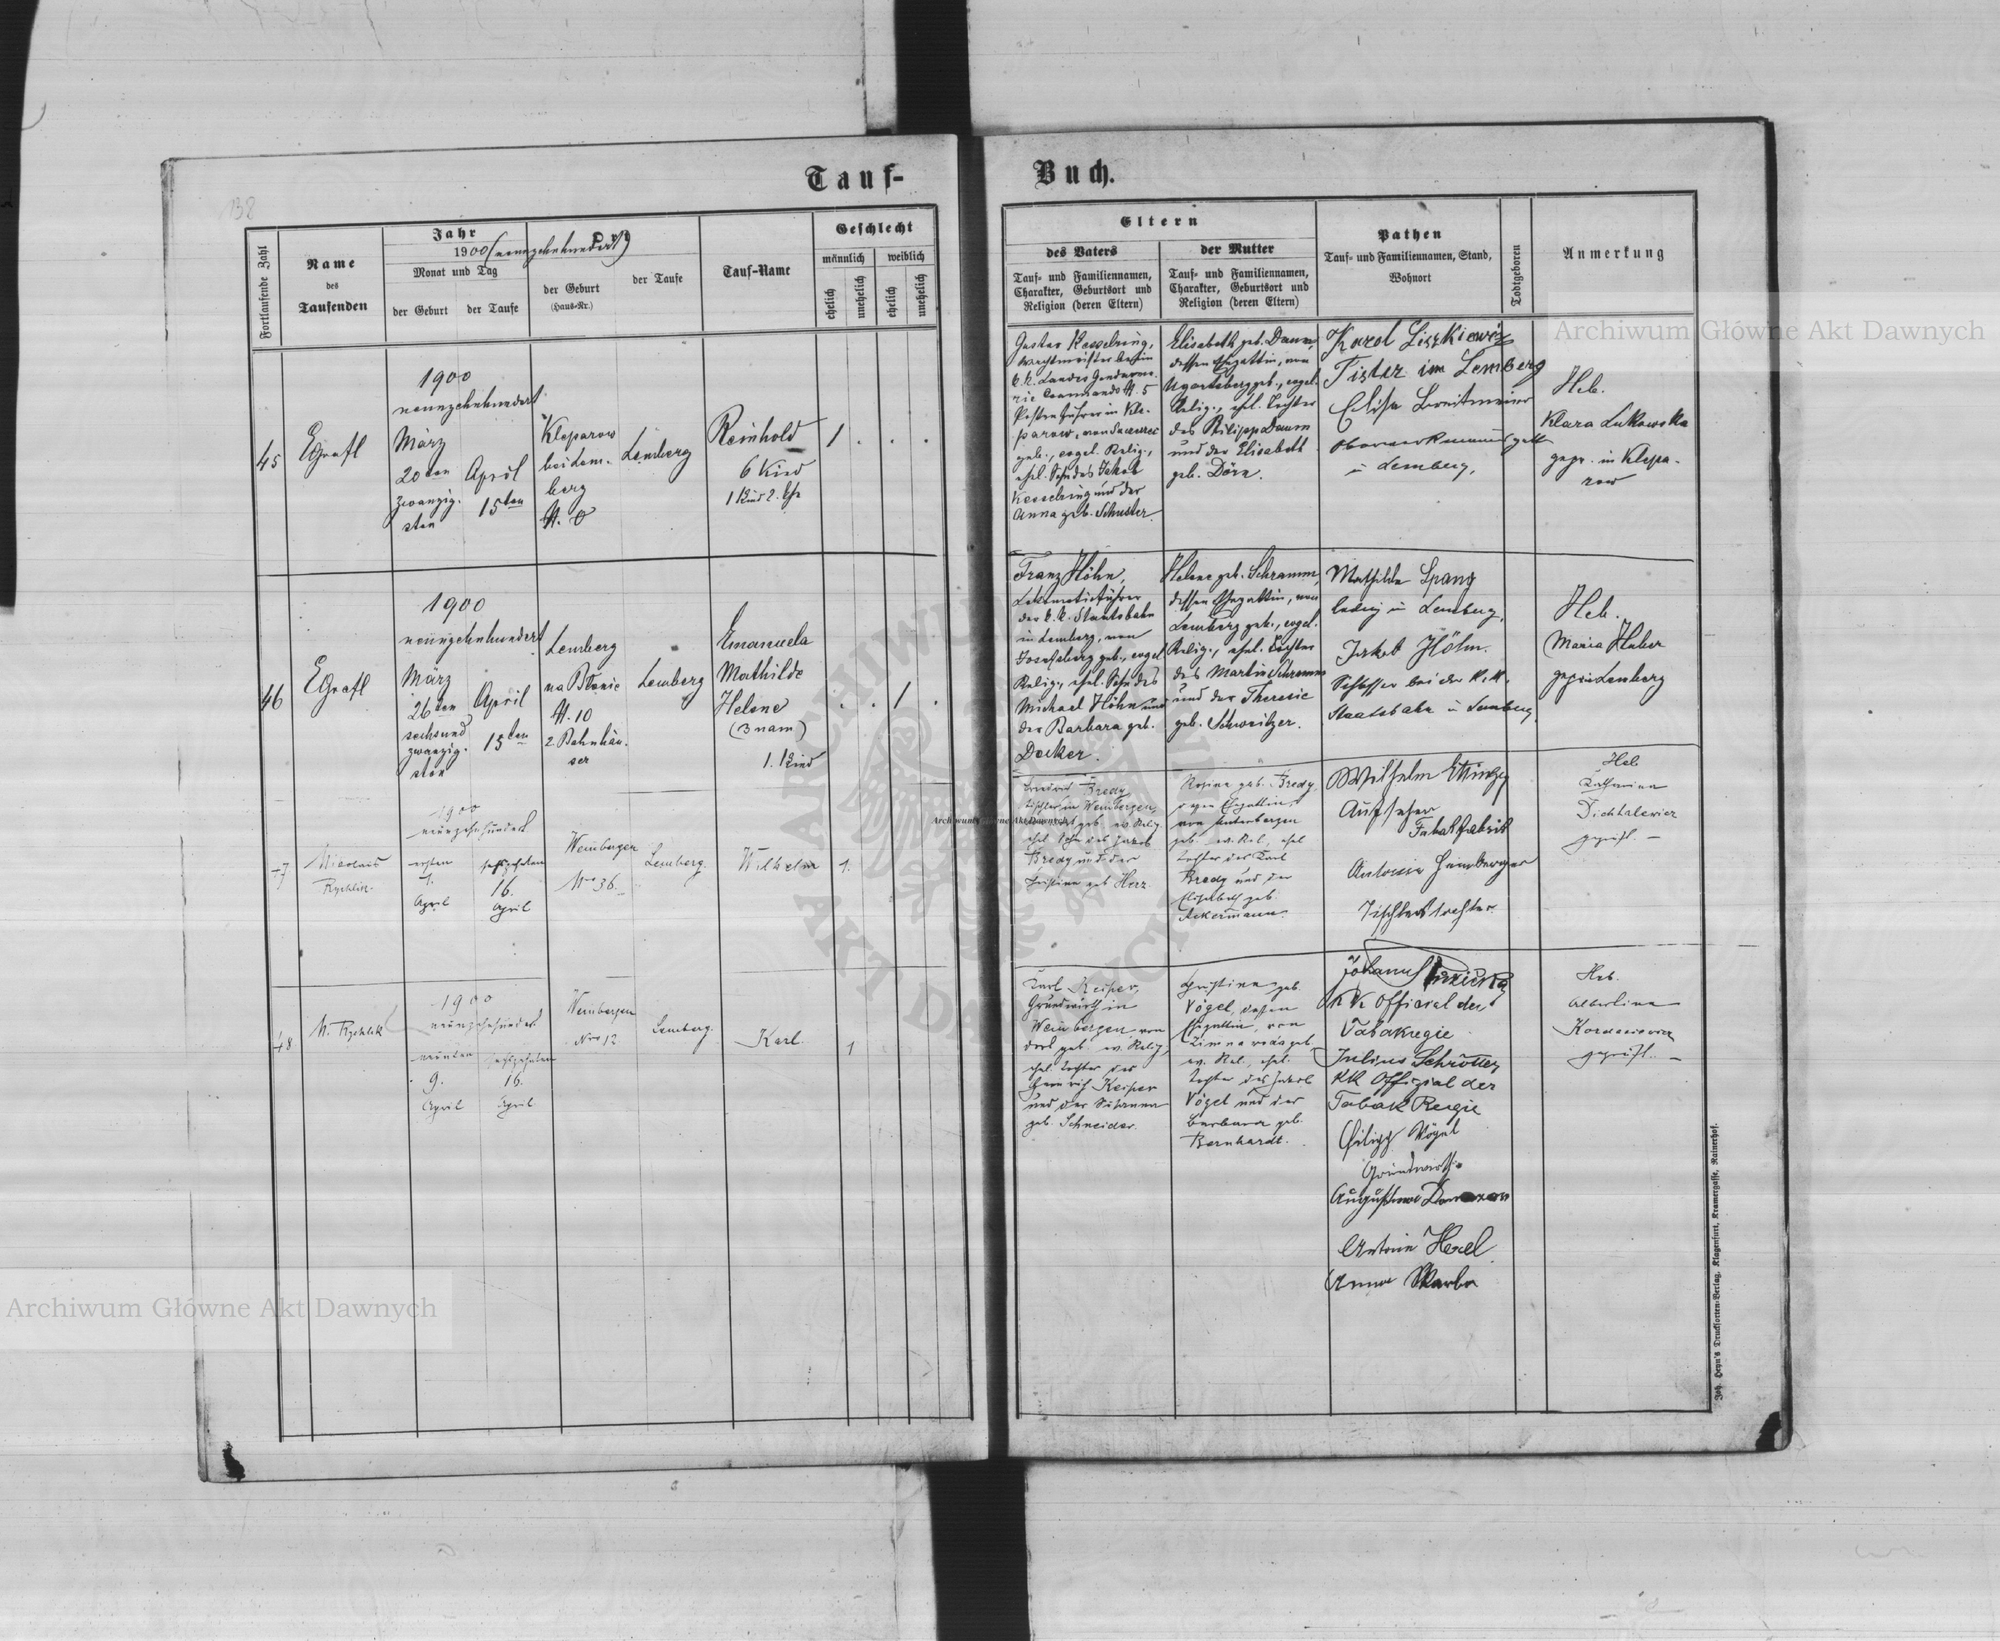 138
Tauf-
Buch.
Fortlaufende Zahl
Name
des
Taufenden
Jahr
1900 (neunzehnhundert)
Monat und Tag
der Geburt
der Taufe
Ort
der Geburt
(Haus-Nr.)
der Taufe
Tauf-Name
Geschlecht
männlich
weiblich
ehelich
unehelich
ehelich
unehelich
Eltern
des Vaters
Tauf- und Familiennamen,
Charakter, Geburtsort und
Religion (deren Eltern)
der Mutter
Tauf- und Familiennamen,
Charakter, Geburtsort und
Religion (deren Eltern)
Pathen
Tauf- und Familiennamen, Stand,
Wohnort
Todtgeboren
Anmerkung
45
EGrafl
1900
neunzehnhundert
März
20ten
zwanzig-
sten
April
15ten
Kleparow
bei Lem-
berg
N. 0
Lemberg
Reinhold
6 Kind
1 Kind 2. Ehe
1
Gustav Kesselring,
Wachtmeister
k. k. Landes Gendarme-
rie Commando N. 5
Postenführer in Kle-
parow, von
geb., evgel. Relig.,
ehel. Sohn des Jakob
Kesselring und der
Anna geb. Schuster.
Elisabeth geb. Daum,
dessen Ehegattin, von
Ugartsberg geb., evgel.
Relig., ehel. Tochter
des Philipp Daum
und der Elisabeth
geb. Dörr.
Karol Liszkiewicz
Tister im Lemberg
Elise Breitmeier
in Lemberg.
Heb.
Klara Lukowska
gepr. in Klepa-
row
46
EGrafl
1900
neunzehnhundert
März
26ten
sechsund
zwanzig-
sten
April
15ten
Lemberg
na Blonie
N. 10
2 Bahnhäu-
ser
Lemberg
Emanuela
Mathilde
Helene
(3 nam)
1. Kind
1
Franz Höhn,
Lokomotivführer
der k. k. Staatsbahn
in Lemberg, von
Josefsberg geb., evgel
Relig., ehel. Sohn des
Michael Höhn und
der Barbara geb.
Decker.
Helene geb. Schramm,
dessen Ehegattin, von
Lemberg geb., evgel.
Relig., ehel. Tochter
des Martin Schramm
und der Theresie
geb. Schweitzer.
Mathilde Spang
ledig in Lemberg,
Jakob Höhn.
Schlosser bei der K. K.
Staatsbahn in Lemberg.
Heb.
Maria Huber
gepr. in Lemberg
47
Nicolaus
Rychlik
1900
neunzehnhundert
ersten
1.
April
sechszehnten
16.
April
Weinbergen
Nro 36.
Lemberg.
Wilhelm
1.
Bredy
Tischler in Weinbergen,
geb. ev. Relig.
ehel. Sohn des Jakob
Bredy und der
Christina geb. Herz.
Rosina geb. Bredy
dessen Ehegattin,
von Unterbergen
geb. ev. Rel., ehel
Tochter des Karl
Bredy und der
Elisabeth geb.
Ackermann.
Wilhelm
Aufseher
Tabakfabrik
Antonia Heimberger
Tischlerstochter.
Heb
Katharina
Dichtalewicz
geprüft. —
48
N. Rychlik
1900
neunzehnhundert
neunten
9.
April
sechszehnten
16.
April
Weinbergen
Nro 12
Lemberg.
Karl.
1
Karl Keiper,
Grundwirth in
Weinbergen von
dort geb. ev. Relig,
ehel. Tochter des
Heinrich Keiper
und der Susanna
geb. Schneider.
Christina geb.
Vögel, dessen
Ehegattin, von
Zimnawoda geb
ev. Rel., ehel.
Tochter des Jakob
Vögel und der
Barbara geb.
Bernhardt.
Johann
KK Official der
Tabakregie
Julius Schrötter
KK Offizial der
Tabak Regie
Philipp Vögel
Grundwirth
Augustina
Antonia Hexel
Anna Skarba
Heb.
Albertina
geprüft. —
Joh. Heyn's Drucksorten-Verlag, Klagenfurt, Kramergasse, Rainerhof.
Archiwum Główne Akt Dawnych
Archiwum Główne Akt Dawnych
Archiwum Główne Akt Dawnych
ARCHIWUM GŁÓWNE AKT DAWNYCH